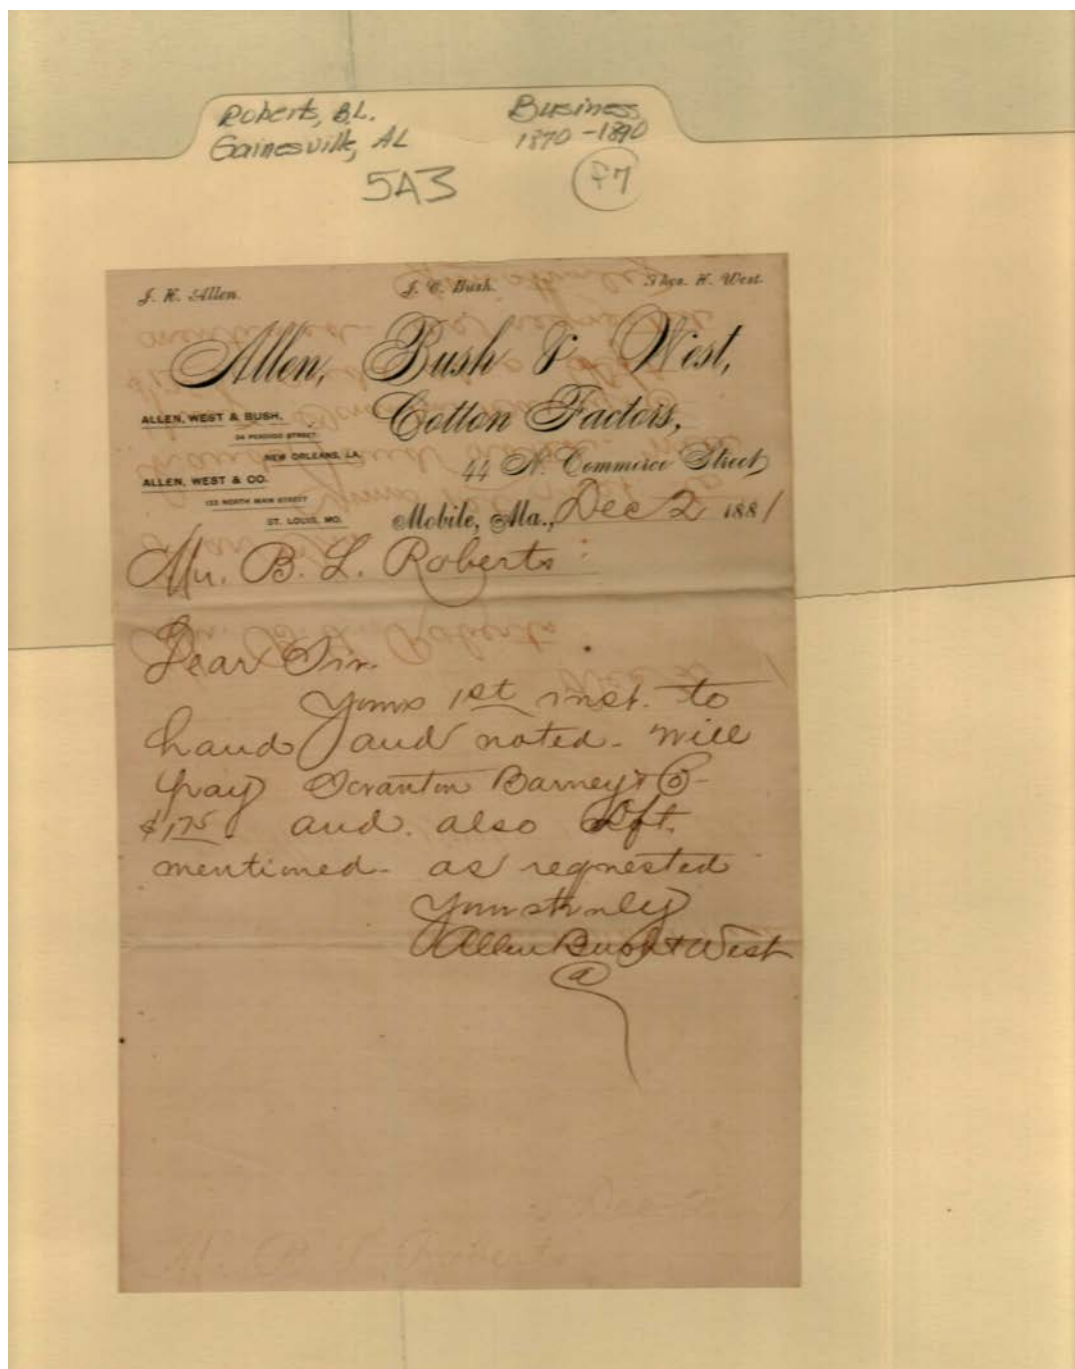 Roberts, B.L.
Gainesville, AL
Business
1870-1890
5A3
F7
J. H. Allen.
J. C. Bush.
Thos. H. West.
Allen, Bush & West,
Cotton Factors,
ALLEN, WEST & BUSH,
34 PERDIDO STREET
NEW ORLEANS, LA.
44 N. Commerce Street
ALLEN, WEST & CO.
123 NORTH MAIN STREET
ST. LOUIS, MO.
Mobile, Ala., Dec 2 1881
Mr. B. L. Roberts:
Dear Sir.
Yours 1st inst. to
hand and noted. will
pay Scranton Barney & Co-
$175 and. also dft.
mentioned. as requested
Yours truly
Allen Bush & West
a